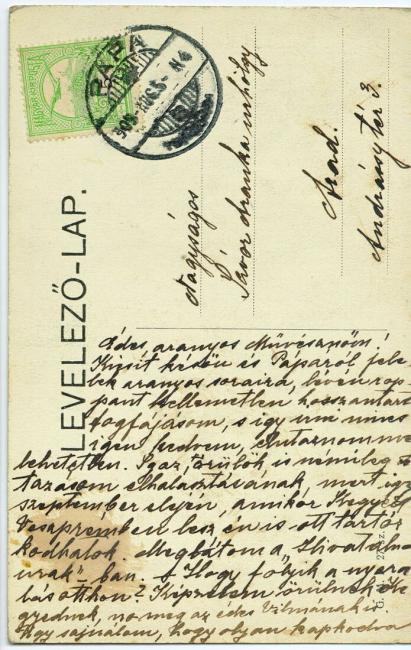 PÁPA
LEVELEZŐ-LAP.
Nagyságos
Arad.
Andrássy tér 3.
Édes aranyos Művésznőm!
Kissit későn és Pápáról jele-
aranyos soraira, lévén rop-
pant kellemetlen hosszantartó
fogfájásom, s így ami nincs
igen kedvem, elutaznom
lehetetlen. Igaz, örülök is némileg
tazásom elhalasztásának, mert így
szeptember elején, amikor
Veszprémben lesz én is ott tartóz-
kodhatok. Megbátom a "Hivatalnok
urak"-ban. A Hogy folyik a nyara-
lás otthon? Képzelem örülnek
gyednek, no meg az édes Vilmának is
Úgy sajnálom, hogy olyan kapkodva